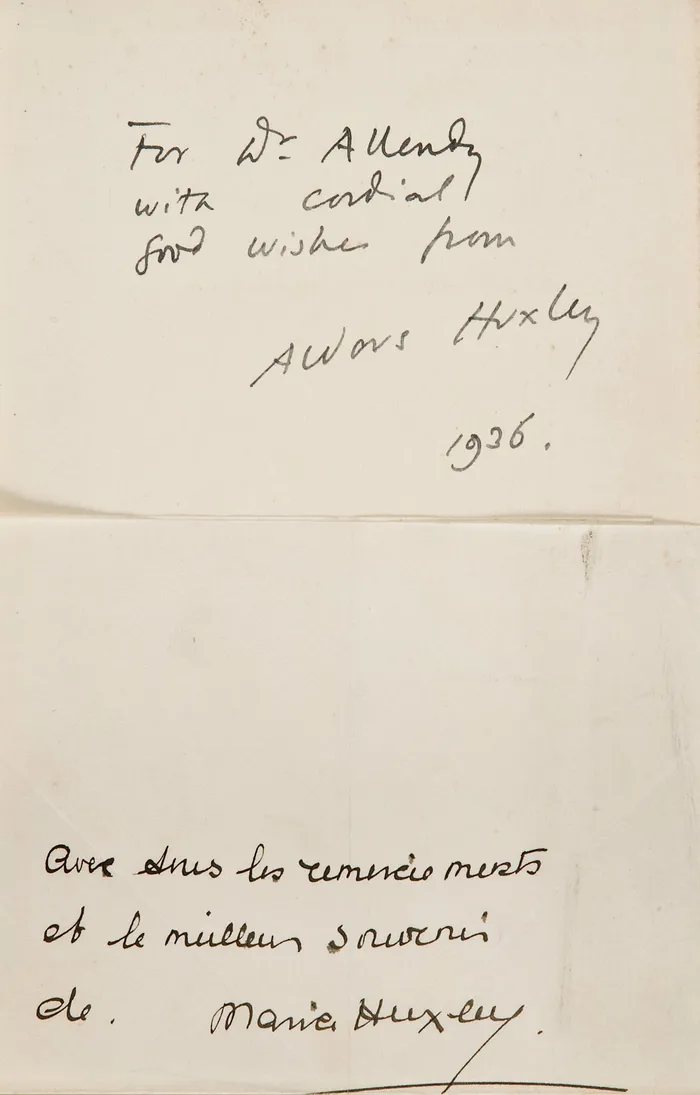 For Dr Allendy
with cordial
good wishes from
Aldous Huxley
1936.
Avec tous les remerciements
et le meilleur souvenir
de. Maria Huxley.